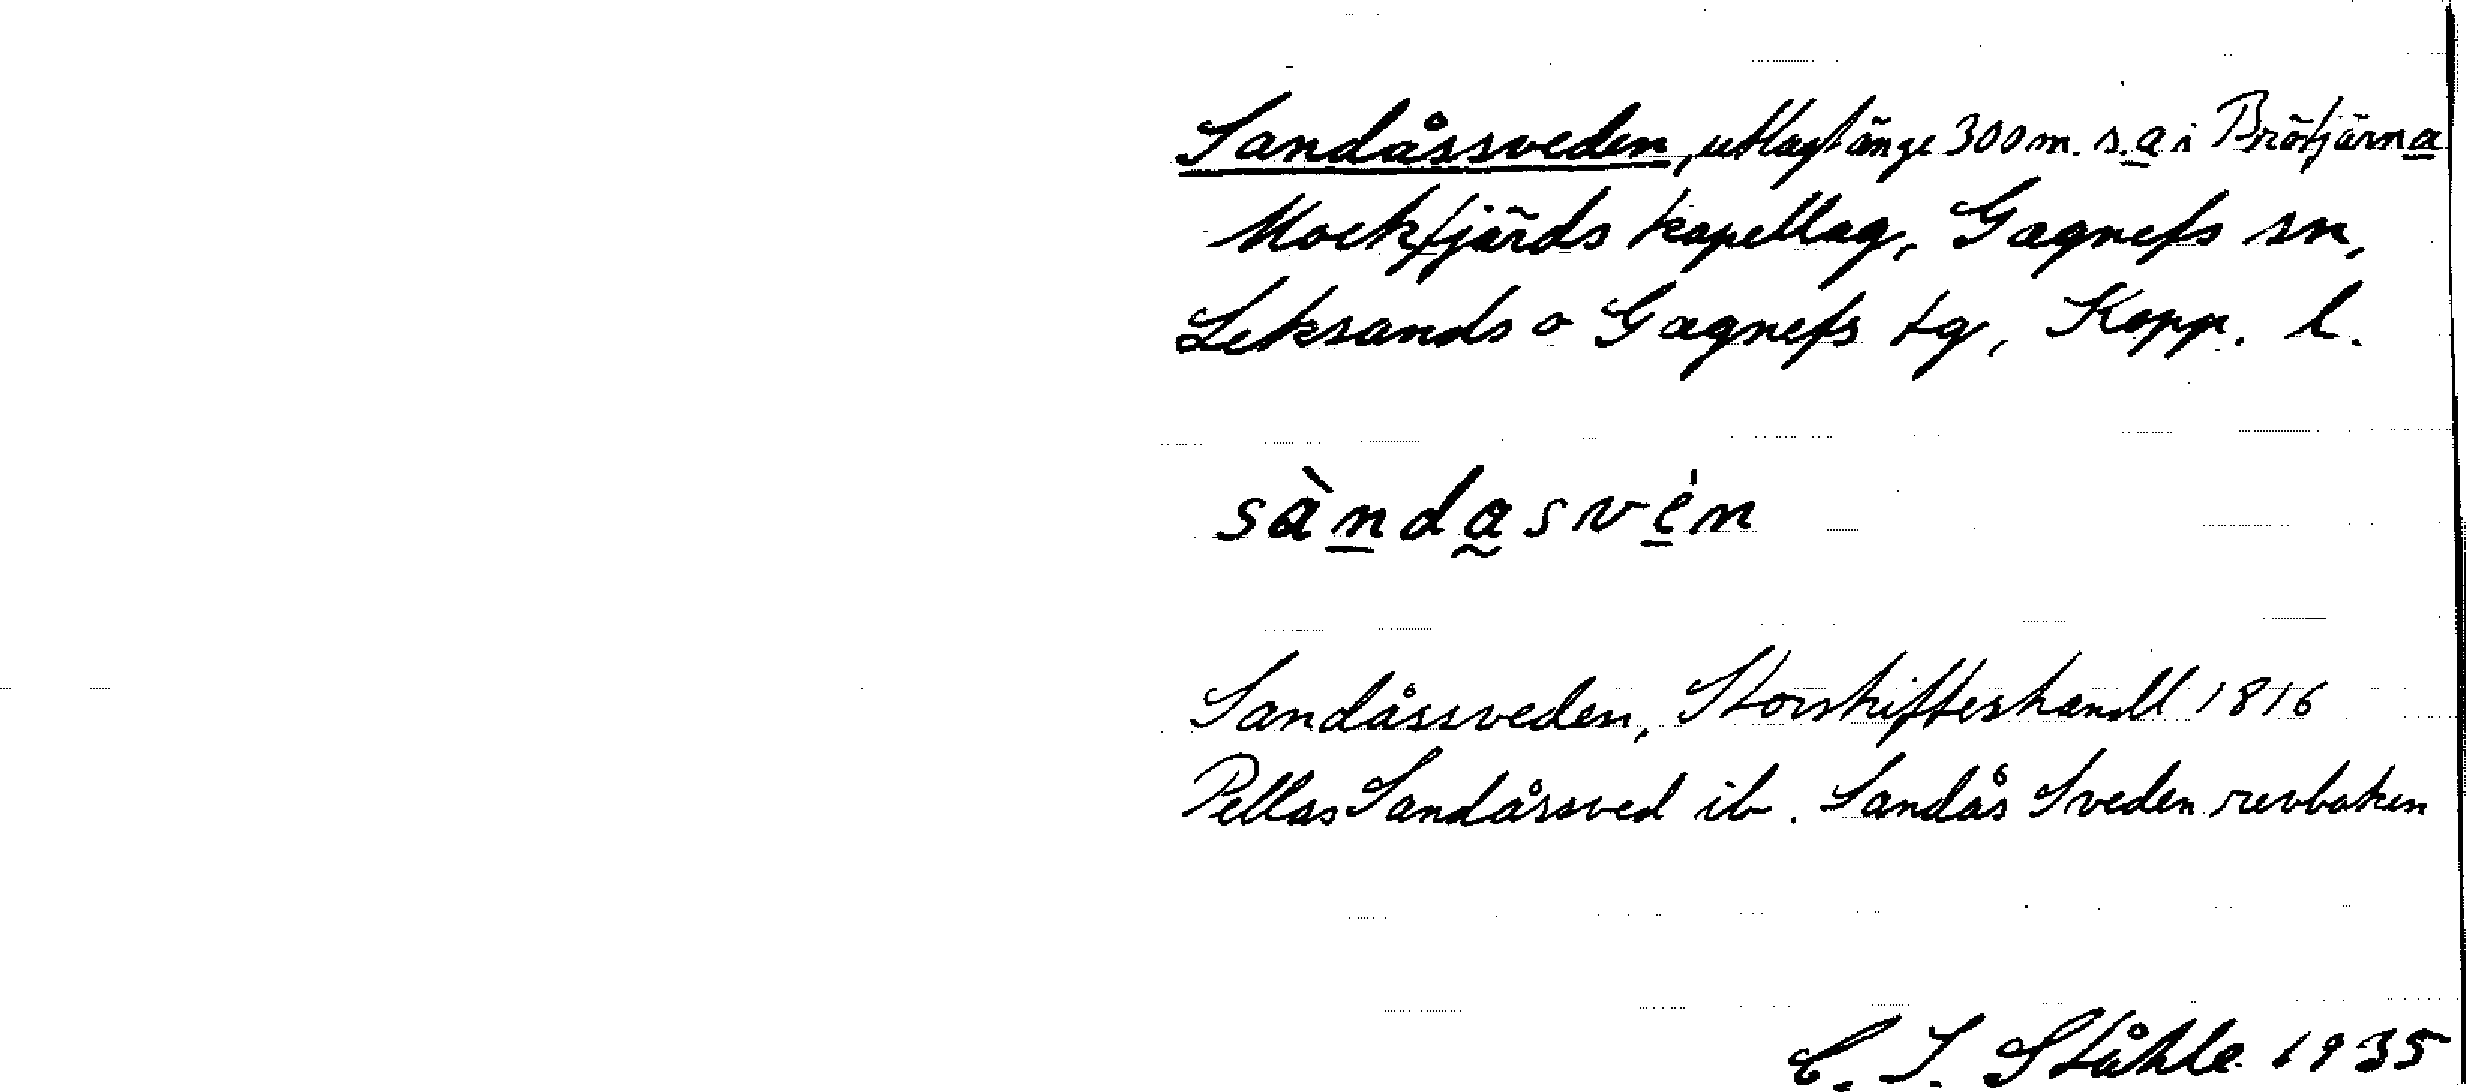 Sandåssveden, utlagt änge 300 m. s. a i Brötjärna
Mockfjärds kapellag, Gagnefs sn,
Leksands o Gagnefs tg, Kopp. l.
sàndasvén
Sandåssveden, Storskifteshandl 1816
Pellas Sandåssved ib. Sandås Sveden revboken
C. I. Ståhle 1935